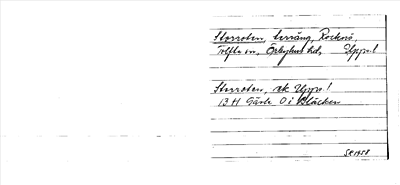 Storroten, terräng, Rocknö,
Tolfta sn, Örbyhus hd, Upps.l
Storroten, ek Upps.l
13 H Gävle 0 i Bläcken
SR 1958